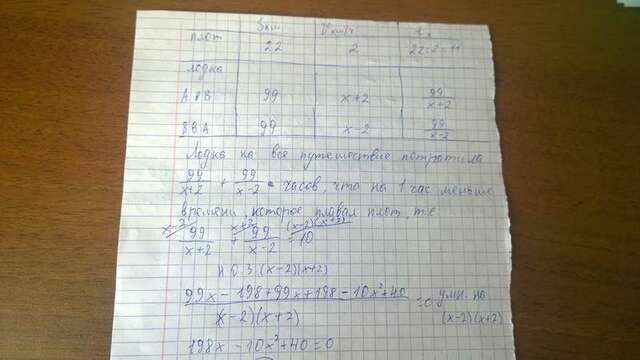 S км V км/ч t
плот 22 2 22:2=11
лодка
А в В 99 x+2 99/(x+2)
В в А 99 x-2 99/(x-2)
Лодка на все путешествие потратила
99/(x+2) + 99/(x-2) часов, что на 1 час меньше
времени, которое плавал плот, т.е
x-2 x+2 (x-2)(x+2)
99/(x+2) + 99/(x-2) = 10
Н.О.З. (x-2)(x+2)
(99x-198+99x+198-10x²+40)/((x-2)(x+2)) =0 умн. на (x-2)(x+2)
198x-10x²+40=0